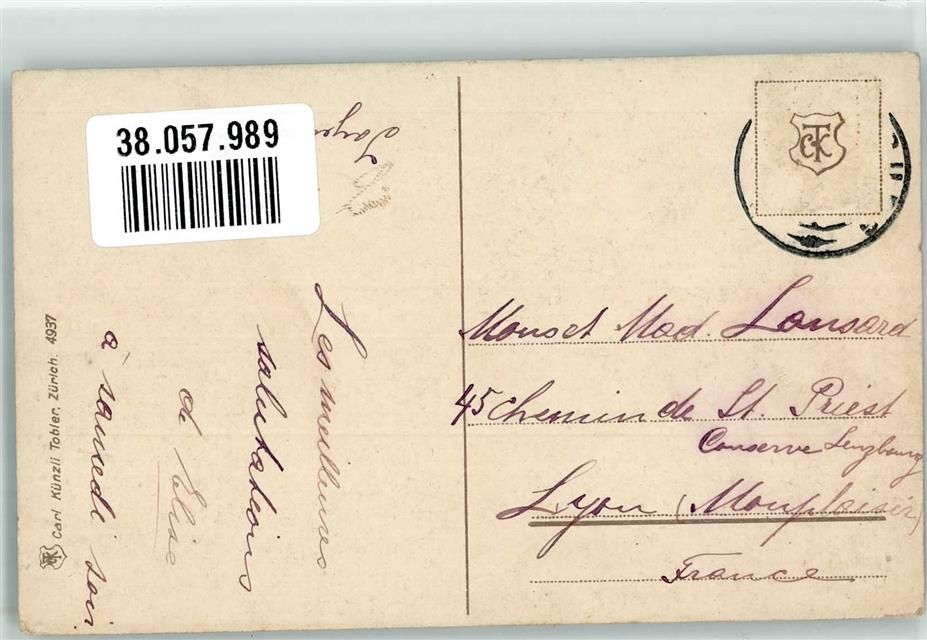 38.057.989
Les meilleures
salutations
d'Elise
à samedi soir
Carl Künzli Tobler, Zürich. 4937
CTK
Mons et Mad. Lonsard
45 Chemin de St. Priest
Conserve Lenzbourg
Lyon (Monplaisir)
France